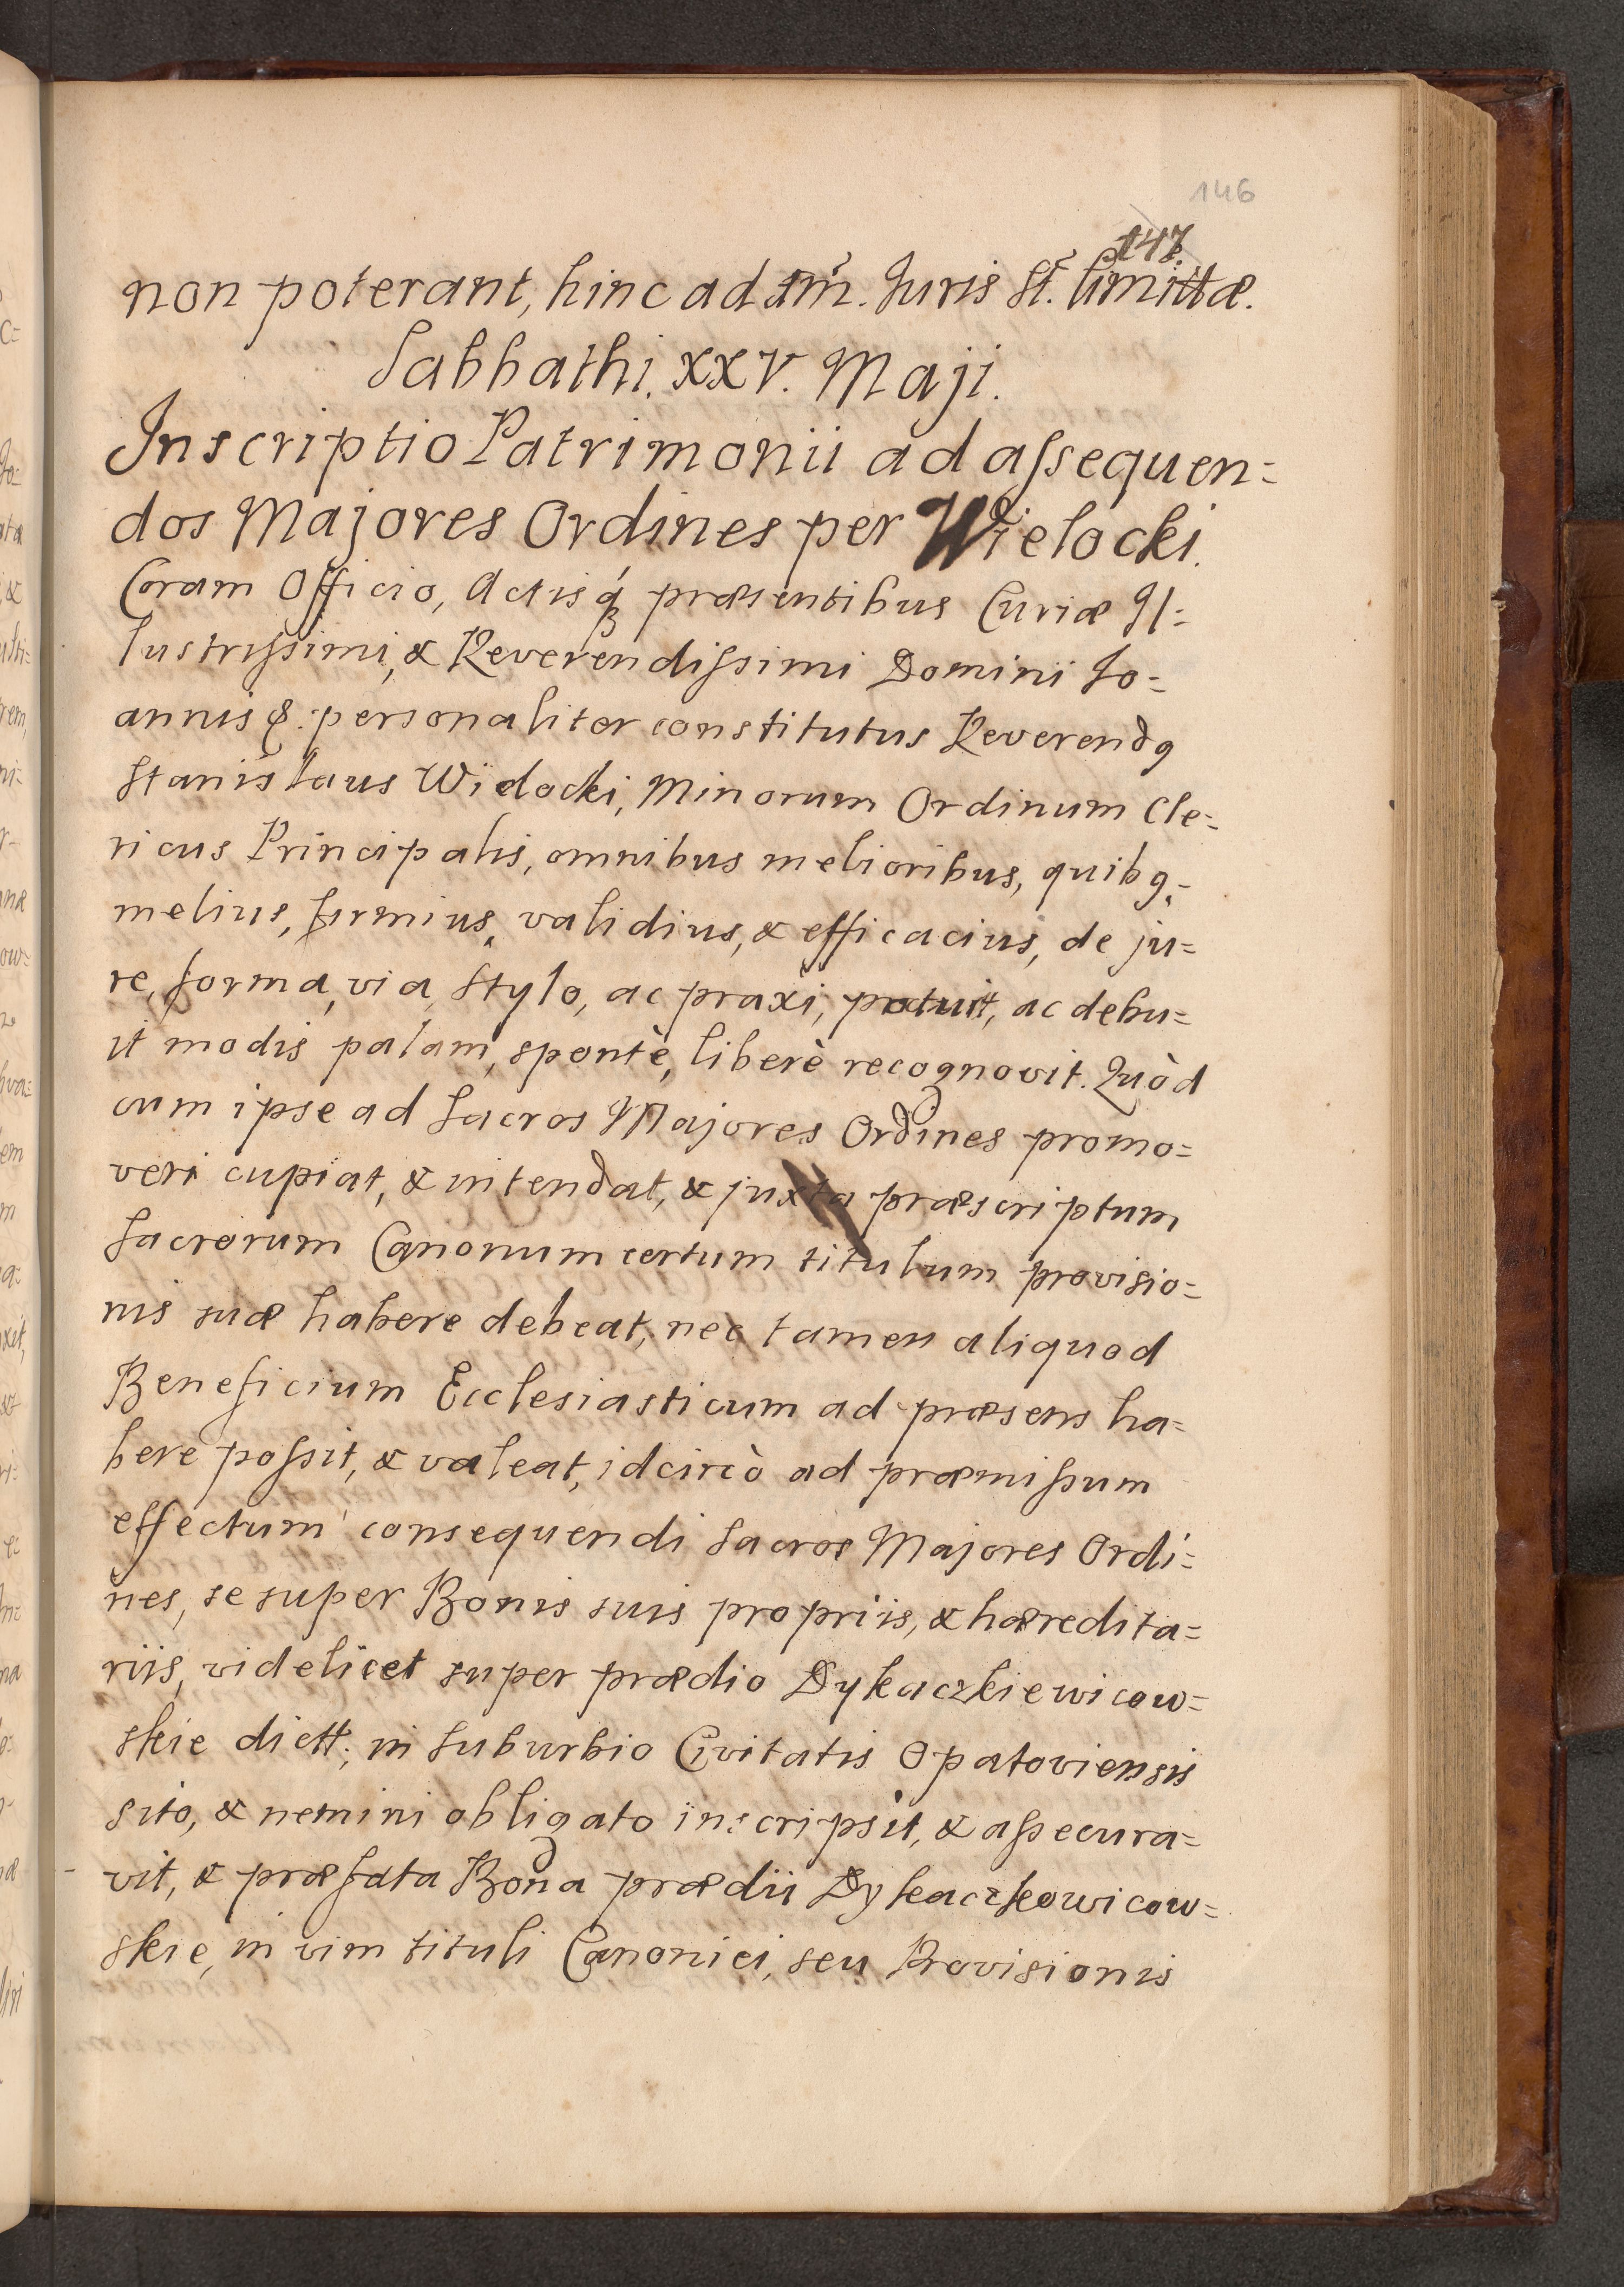 146
147.
non poterant, hinc ad Im̃. Juris st̃. limittæ.
Sabbathi. XXV. Maji.
Inscriptio Patrimonii ad aſsequen=
dos Majores Ordines per Wielocki.
Coram Officio, Actisq́ꝫ præsentibus Curiæ Il=
lustriſsimi, & Reverendiſsimi Domini Jo=
annis &: personaliter constitutus Reverendꝯ
Stanislaus Wielocki, Minorum Ordinum Cle=
ricus Principalis, omnibus melioribus, quibꝯ=
melius, firmius, validius, & efficacius, de ju=
re, forma, via, stylo, ac praxi, potuit, ac debu=
it modis palam, spontè, liberè recognovit. Quòd
cum ipse ad Sacros Majores Ordines promo=
veri cupiat, & intendat, & juxta præscriptum
Sacrorum Canonum certum titulum provisio=
nis suæ habere debeat, nec tamen aliquod
Beneficium Ecclesiasticum ad præsens ha=
bere poſsit, & valeat, idcircò ad præmiſsum
effectum consequendi Sacros Majores Ordi=
nes, se super Bonis suis propriis, & hæredita=
riis, videlicet super prædio Dykaczkiewicow=
skie dictt; in Suburbio Civitatis Opatoviensis
sito, & nemini obligato inscripsit, & aſsecura=
vit, & præfata Bona prædii Dykaczkowicow=
skie, in vim tituli Canonici, seu Provisionis